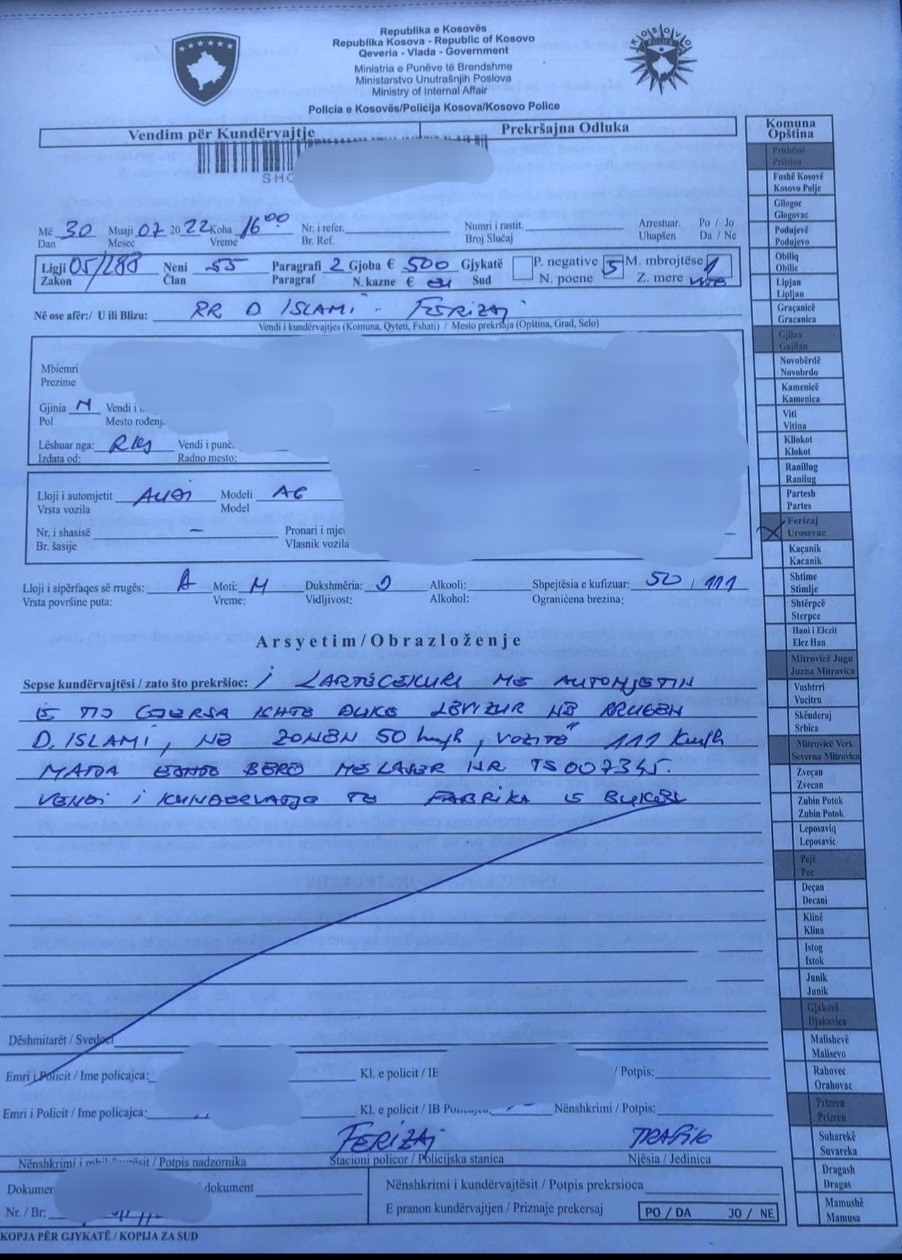 Republika e Kosovës
Republika Kosova - Republic of Kosovo
Qeveria - Vlada - Government
Ministria e Punëve të Brendshme
Ministarstvo Unutrašnjih Poslova
Ministry of Internal Affair
Policia e Kosovës/Policija Kosova/Kosovo Police
KOSOVO
POLICE
Vendim për Kundërvajtje Prekršajna Odluka
Më 30 Muaji 07 2022 Koha 16:00 Nr. i refer. Numri i rastit. Arrestuar. Po / Jo
Dan Mesec Vreme Br. Ref. Broj Slučaj Uhapšen Da / Ne
Ligji 05/288 Neni 55 Paragrafi 2 Gjoba € 500 Gjykatë P. negative 5 M. mbrojtëse 1
Zakon Član Paragraf N. kazne € Sud N. poene Z. mere
Në ose afër:/ U ili Blizu: RR D. ISLAMI - FERIZAJ
Vendi i kundërvajtjes (Komuna, Qyteti, Fshati) / Mesto prekršaja (Opština, Grad, Selo)
Mbiemri
Prezime
Gjinia M Vendi i
Pol Mesto rođenj.
Lëshuar nga: RKS Vendi i punë.
Izdata od: Radno mesto:
Lloji i automjetit AUDI Modeli A6
Vrsta vozila Model
Nr. i shasisë - Pronari i mje
Br. šasije Vlasnik vozila
Lloji i sipërfaqes së rrugës: A Moti: M Dukshmëria: D Alkooli: Shpejtësia e kufizuar: 50 / 111
Vrsta površine puta: Vreme: Vidljivost: Alkohol: Ograničena brezina:
Arsyetim/Obrazloženje
Sepse kundërvajtësi / zato što prekršioc: I LARTËCEKURI ME AUTOMJETIN
E TIJ DERSA ISHTE DUKE LËVIZUR NË RRUGËN
D. ISLAMI, NË ZONËN 50 km/h, VOZITË 111 km/h
MATJA ËSHTË BËRË ME LASER NR TS007345.
VENDI I KUNDERVATJE TE FABRIKA E BUKËS
Dëshmitarët / Svedoci
Emri i Policit / Ime policajca: Kl. e policit / IB / Potpis:
Emri i Policit / Ime policajca: Kl. e policit / IB Nënshkrimi / Potpis:
FERIZAJ TRAFIK
Nënshkrimi i / Potpis nadzornika Stacioni policor / Policijska stanica Njësia / Jedinica
Dokument dokument Nënshkrimi i kundërvajtësit / Potpis prekrsioca
Nr. / Br: E pranon kundërvajtjen / Priznaje prekersaj PO / DA JO / NE
KOPJA PËR GJYKATË / KOPIJA ZA SUD
Komuna
Opština
Prishtinë
Priština
Fushë Kosovë
Kosovo Polje
Gllogoc
Glogovac
Podujevë
Podujevo
Obiliq
Obilic
Lipjan
Lipljan
Graçanicë
Gracanica
Gjilan
Gnjilan
Novobërdë
Novobrdo
Kamenicë
Kamenica
Viti
Vitina
Kllokot
Klokot
Ranillug
Ranilug
Partesh
Partes
X Ferizaj
Urosevac
Kaçanik
Kacanik
Shtime
Stimlje
Shtërpcë
Sterpce
Hani i Elezit
Elez Han
Mitrovicë Jugu
Juzna Mitrovica
Vushtrri
Vucitrn
Skënderaj
Srbica
Mitrovicë Veri.
Severna Mitrovica
Zveçan
Zvecan
Zubin Potok
Zubin Potok
Leposaviq
Leposavic
Pejë
Pec
Deçan
Decani
Klinë
Klina
Istog
Istok
Junik
Junik
Gjakovë
Djakovica
Malishevë
Malisevo
Rahovec
Orahovac
Prizren
Prizren
Suharekë
Suvareka
Dragash
Dragas
Mamushë
Mamusa